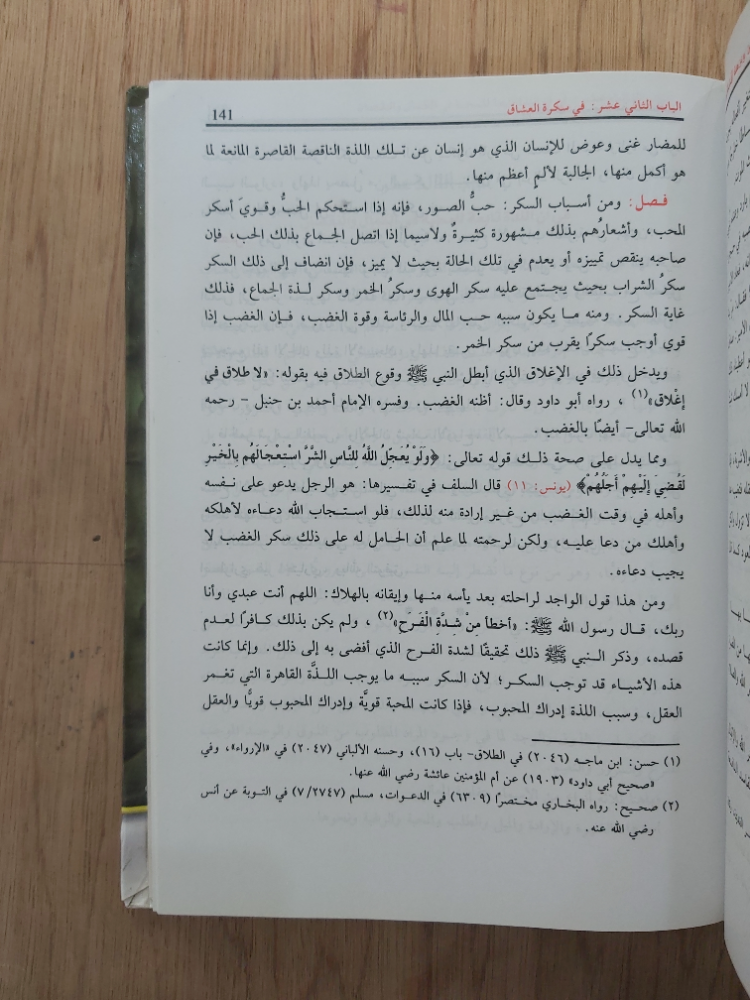 الباب الثاني عشر: في سكرة العشاق
141
للمضار غنى وعوض للإنسان الذي هو إنسان عن تلك اللذة الناقصة القاصرة المانعة لما
هو أكمل منها، الجالبة لألمٍ أعظم منها.
فصل: ومن أسباب السكر: حبُّ الصور، فإنه إذا استحكم الحبُّ وقويَ أسكر
المحب، وأشعارُهم بذلك مشهورة كثيرةٌ ولاسيما إذا اتصل الجماع بذلك الحب، فإن
صاحبه ينقص تمييزه أو يعدم في تلك الحالة بحيث لا يميز، فإن انضاف إلى ذلك السكر
سكرُ الشراب بحيث يجتمع عليه سكر الهوى وسكرُ الخمر وسكر لـذة الجماع، فذلك
غاية السكر. ومنه ما يكون سببه حب المال والرئاسة وقوة الغضب، فإن الغضب إذا
قوي أوجب سكرًا يقرب من سكر الخمر.
ويدخل ذلك في الإغلاق الذي أبطل النبي ﷺ وقوع الطلاق فيه بقوله: «لا طلاق في
إغْلاق»(١) ، رواه أبو داود وقال: أظنه الغضب. وفسره الإمام أحمد بن حنبل – رحمه
الله تعالى– أيضًا بالغضب.
ومما يدل على صحة ذلك قوله تعالى: ﴿وَلَوْ يُعَجِّلُ اللهُ لِلنَّاسِ الشَّرَّ اسْتِعْجَالَهُم بِالْخَيْرِ
لَقُضِيَ إِلَيْهِمْ أَجَلُهُمْ﴾ (يونس: ١١) قال السلف في تفسيرها: هو الرجل يدعو على نفسه
وأهله في وقت الغضب من غير إرادة منه لذلك، فلو استجاب الله دعاءه لأهلكه
وأهلك من دعا عليه، ولكن لرحمته لما علم أن الحامل له على ذلك سكر الغضب لا
يجيب دعاءه.
ومن هذا قول الواجد لراحلته بعد يأسه منها وإيقانه بالهلاك: اللهم أنت عبدي وأنا
ربك، قال رسول الله ﷺ: «أخطأ مِنْ شِدَّةِ الْفَرَحِ»(٢) ، ولم يكن بذلك كافرًا لعدم
قصده، وذكر النبي ﷺ ذلك تحقيقًا لشدة الفرح الذي أفضى به إلى ذلك. وإنما كانت
هذه الأشياء قد توجب السكر؛ لأن السكر سببه ما يوجب اللذَّة القاهرة التي تغمر
العقل، وسبب اللذة إدراك المحبوب، فإذا كانت المحبة قويَّة وإدراك المحبوب قويًّا والعقل
(١) حسن: ابن ماجه (٢٠٤٦) في الطلاق– باب (١٦)، وحسنه الألباني (٢٠٤٧) في «الإرواء»، وفي
«صحيح أبي داود» (١٩٠٣) عن أم المؤمنين عائشة رضي الله عنها.
(٢) صحيح: رواه البخاري مختصرًا (٦٣٠٩) في الدعوات، مسلم (٧/٢٧٤٧) في التوبة عن أنس
رضي الله عنه.